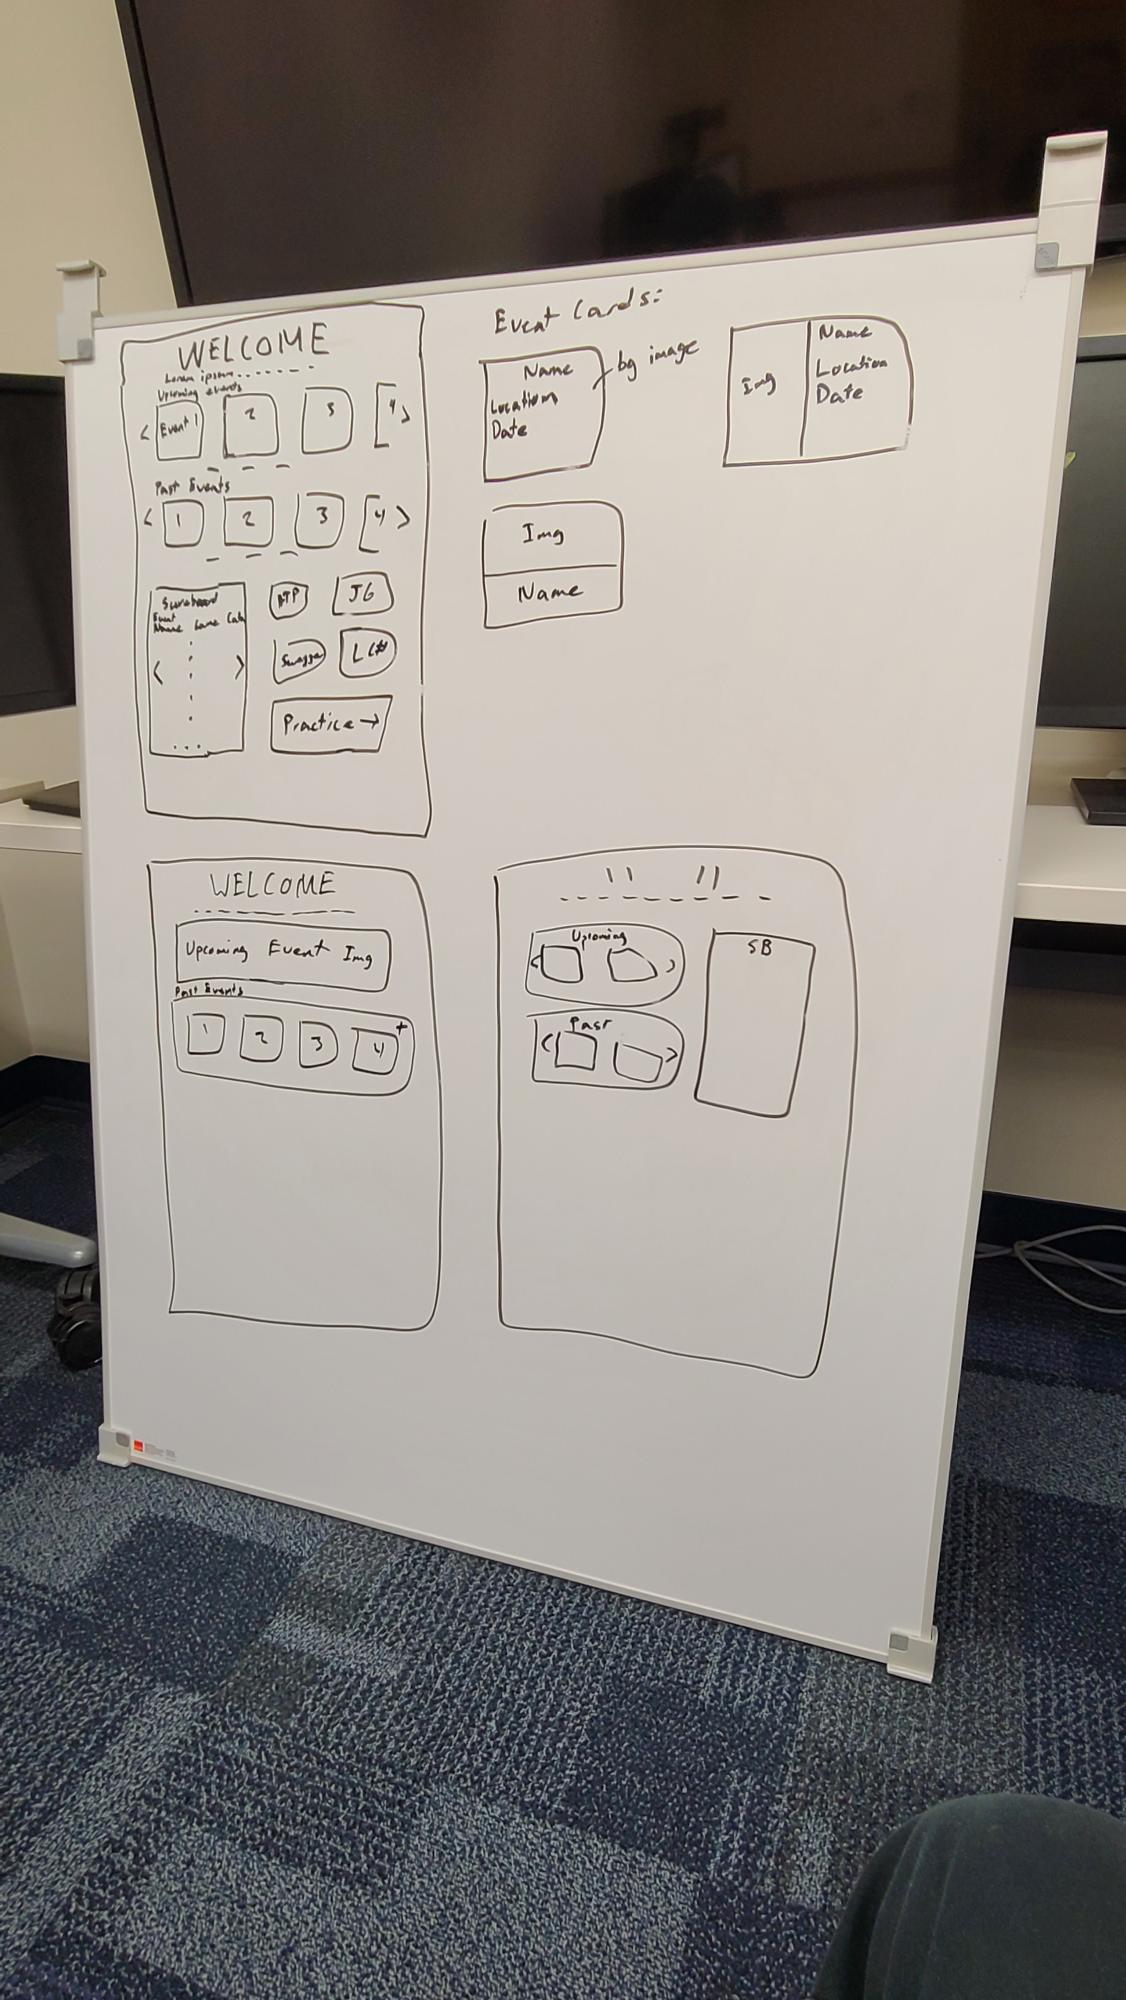 WELCOME
Lorem ipsum.......
Upcoming events
< Event 1 2 3 4 >
Past Events
< 1 2 3 4 >
Scoreboard
Event
Name Game
< >
...
JG
LC#
Practice →
Event Cards:
Name
Location
Date
bg image
Img
Name
Location
Date
Img
Name
WELCOME
Upcoming Event Img
Past Events
1 2 3 4 +
" "
Upcoming
< >
Past
< >
SB